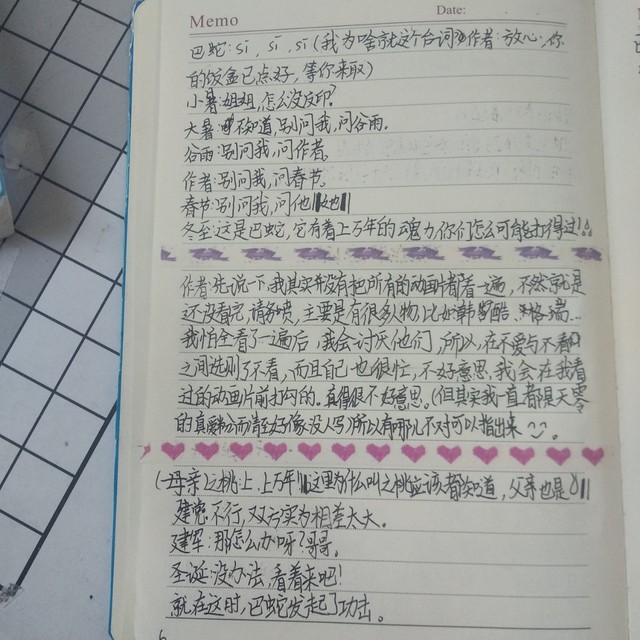 Memo
Date:
巴蛇:sī,sī,sī(我为啥就这个台词?作者:放心,你
的饭盒已点好,等你来取)
小暑:姐姐,怎么没反印?
大暑:不知道,别问我,问谷雨。
谷雨:别问我,问作者。
作者:别问我,问春节。
春节:别问我,问他
冬至:这是巴蛇,它有着上万年的魂力你们怎么可能打得过!
作者:先说一下,我其实并没有把所有的动画片都看一遍,不然就是
还没看完,请勿喷,主要是有很多人物,比如韩
我怕全看了一遍后,我会讨厌他们,所以,在不爱与不看
之间选则了不看,而且自己也很忙,不好意思,我会在我看
过的动画片前打勾的。真得很不好意思。(但其实我一直都是天
的真 好像没人写所以有哪儿不对可以指出来
(母亲)之桃:上,上万年 这里为什么叫之桃应该都知道,父亲也是
建党:不行,双方实力相差太大。
建军:那怎么办呀?哥哥。
圣诞:没办法,看着来吧!
就在这时,巴蛇发起了功击。